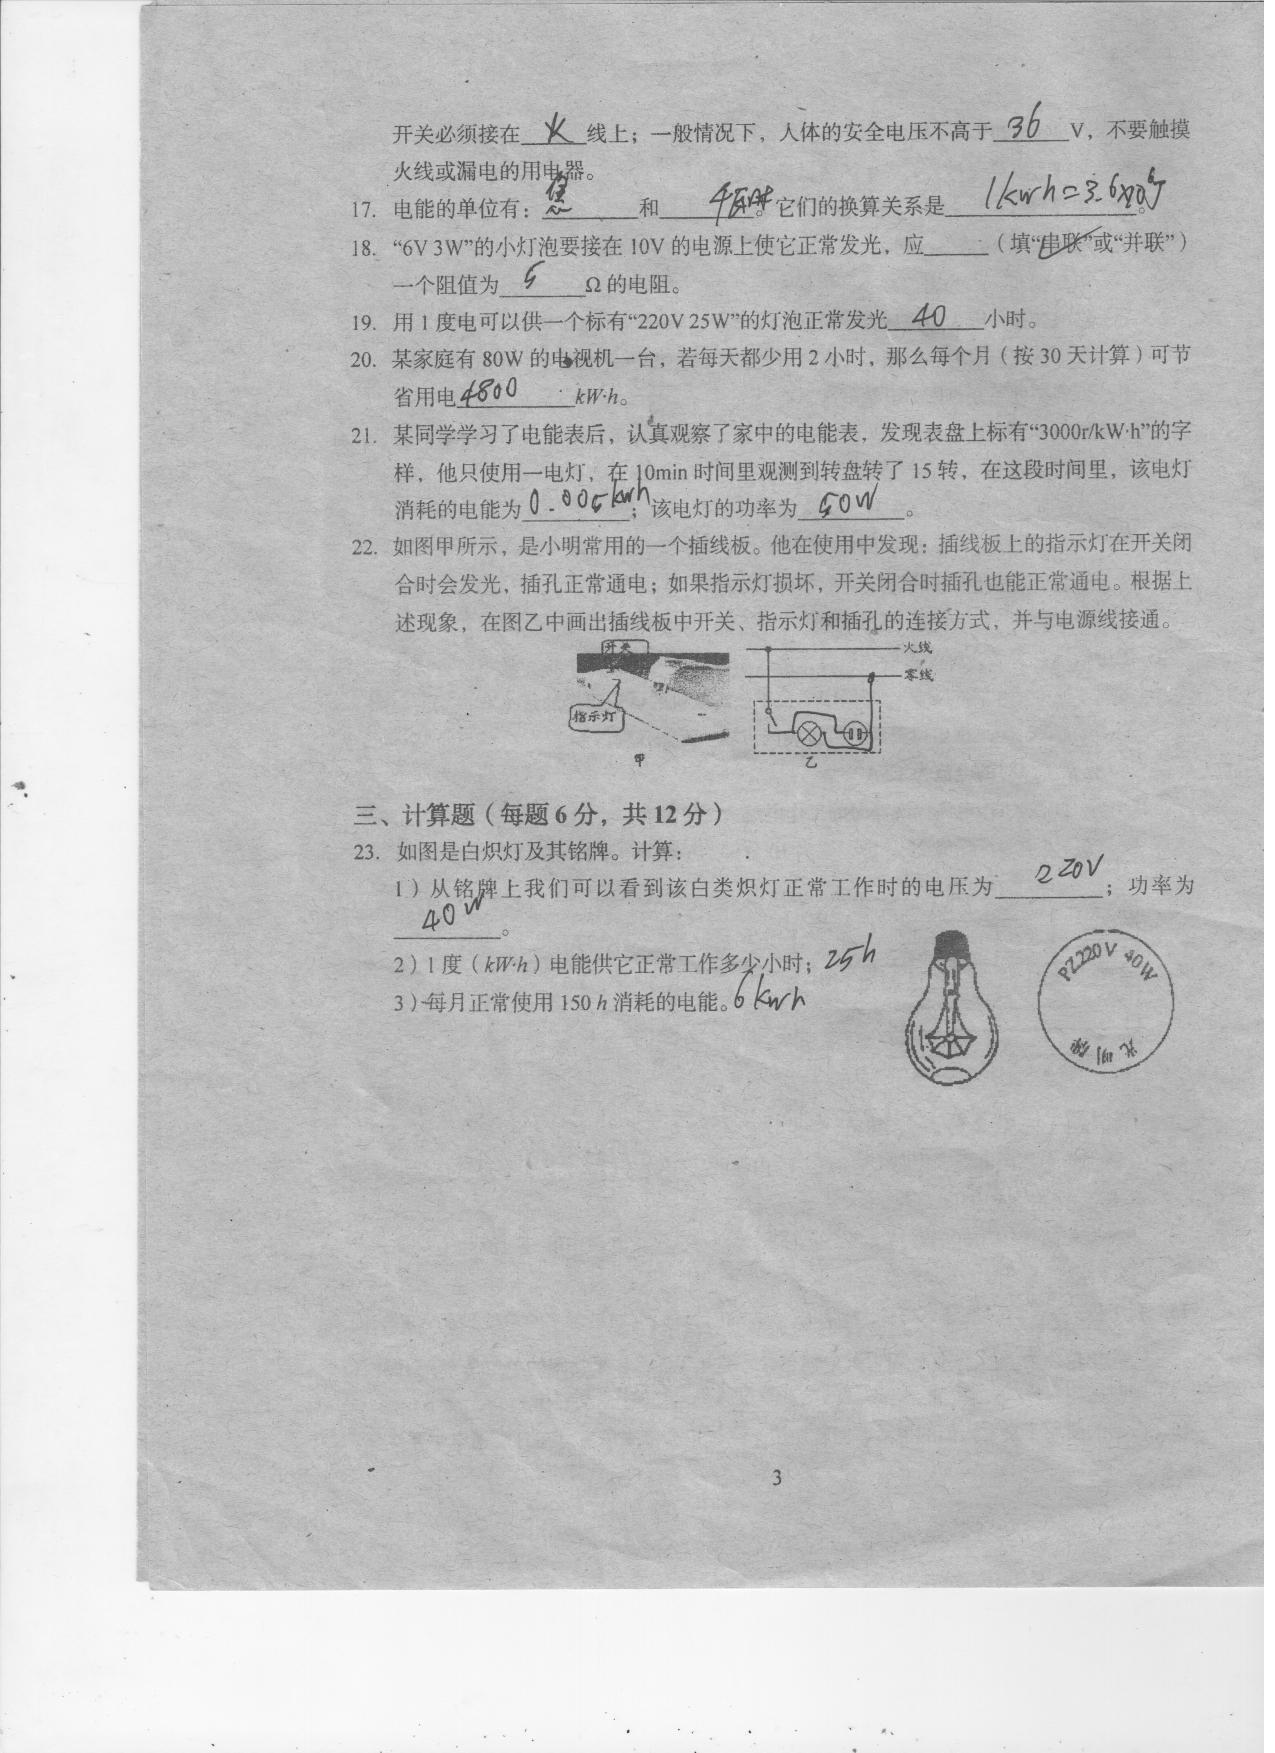 开关必须接在 火 线上；一般情况下，人体的安全电压不高于 36 V，不要触摸
火线或漏电的用电器。
17. 电能的单位有：焦 和 千瓦时。它们的换算关系是 1kwh=3.6×10⁶J。
18. “6V 3W”的小灯泡要接在 10V 的电源上使它正常发光，应______（填“串联”或“并联”）
一个阻值为 5 Ω 的电阻。
19. 用 1 度电可以供一个标有“220V 25W”的灯泡正常发光 40 小时。
20. 某家庭有 80W 的电视机一台，若每天都少用 2 小时，那么每个月（按 30 天计算）可节
省用电 4800 kW·h。
21. 某同学学习了电能表后，认真观察了家中的电能表，发现表盘上标有“3000r/kW·h”的字
样，他只使用一电灯，在 10min 时间里观测到转盘转了 15 转，在这段时间里，该电灯
消耗的电能为 0.005kwh；该电灯的功率为 50W。
22. 如图甲所示，是小明常用的一个插线板。他在使用中发现：插线板上的指示灯在开关闭
合时会发光，插孔正常通电；如果指示灯损坏，开关闭合时插孔也能正常通电。根据上
述现象，在图乙中画出插线板中开关、指示灯和插孔的连接方式，并与电源线接通。
开关
火线
零线
指示灯
甲
乙
三、计算题（每题 6 分，共 12 分）
23. 如图是白炽灯及其铭牌。计算：
1）从铭牌上我们可以看到该白类炽灯正常工作时的电压为 220V；功率为
40W。
2）1 度（kW·h）电能供它正常工作多少小时；25h
3）每月正常使用 150 h 消耗的电能。6kwh
PZ220V 40W
光明牌
3